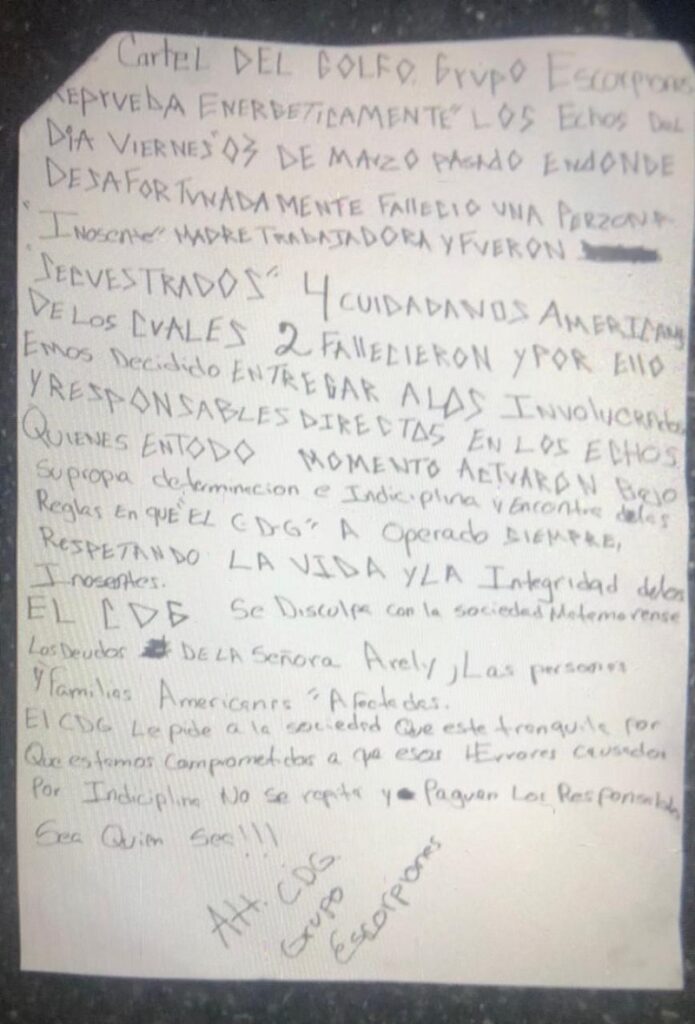 Cartel DEL GOLFO Grupo Escorpiones
REPRUEBA ENERGETICAMENTE" LOS Echos DEL
DIA VIERNES" 03 DE MARZO PASADO ENDONDE
DESAFORTUNADAMENTE FAllECIO UNA PERZONA
"INosente" MADRE TRABAJADORA Y FUERON
"SECUESTRADOS" 4 CUIDADANOS AMERICANOS
DE LOS CUALES 2 FAllECIERON Y POR Ello
Emos Decidido ENTREGAR A LOS Involucrados
Y RESPONSABLES DIRECTOS EN LOS ECHOS
QUIENES EN TODO MOMENTO ACTUARON BAJO
Su propia determinacion e Indiciplina y Encontra de las
Reglas En QUE "EL CDG" A Operado SIEMPRE,
RESPETANDO LA VIDA Y LA Integridad de los
Inosentes.
EL CDG Se Disculpa con la sociedad Matamorense
Los Deudos DE LA Señora Arely, Las personas
Y familias Americanas "Afectadas.
El CDG Le pide a la sociedad Que este tranquila por
Que estamos Comprometidos a que esos Errores causados
Por Indiciplina No se repita y Paguen Los Responsables
Sea Quien Sea!!!
Att. CDG
Grupo
Escorpiones